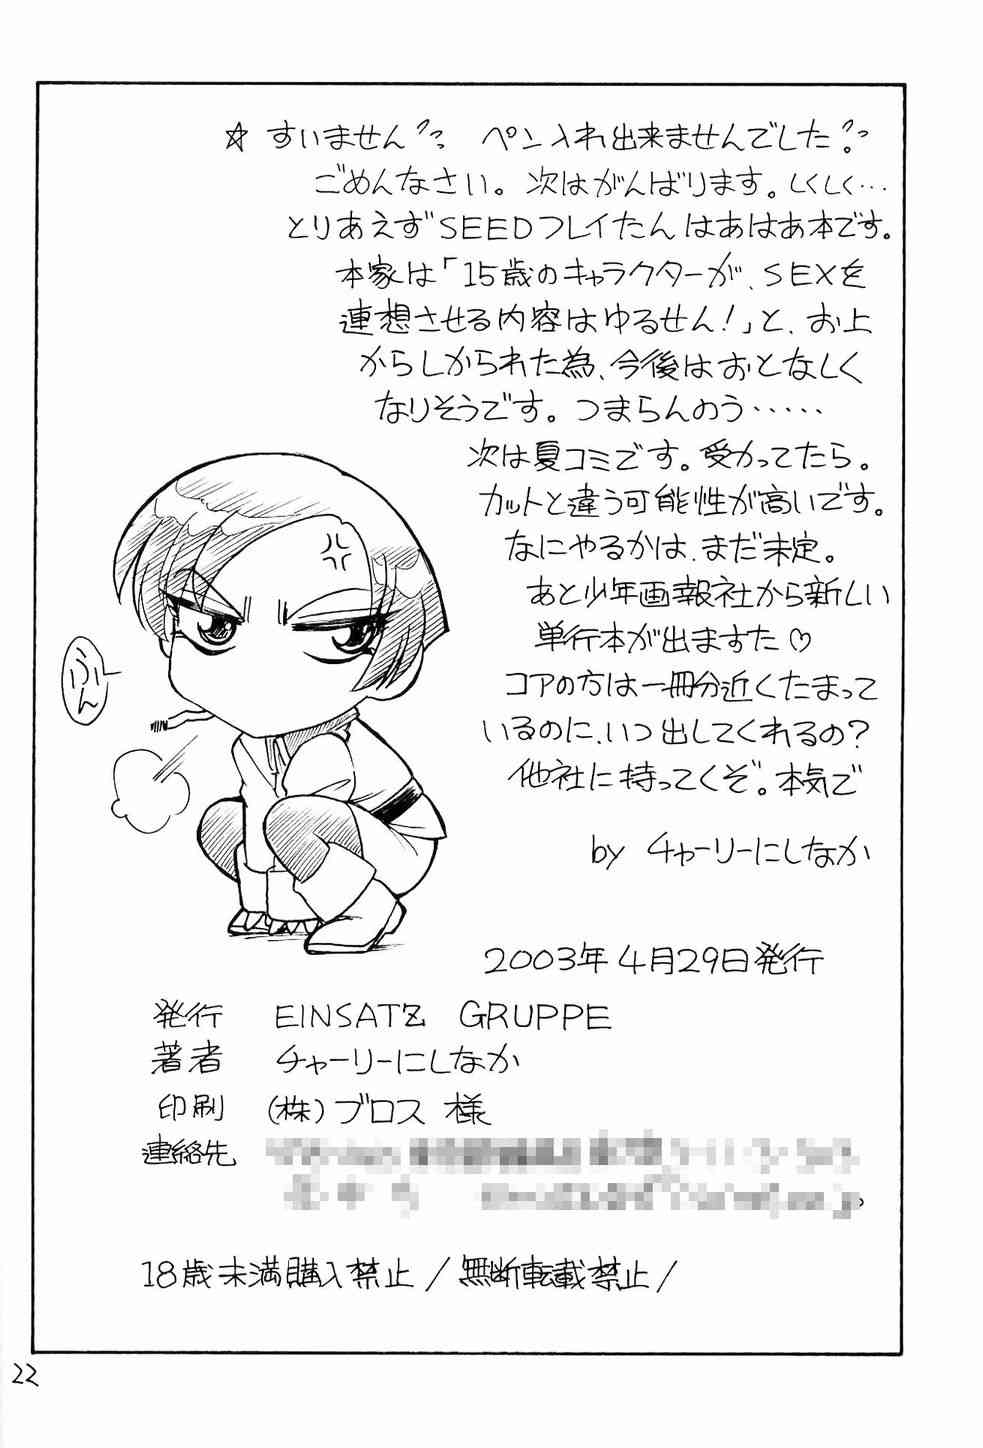 ☆ すいません!? ペン入れ出来ませんでした!?
ごめんなさい。次はがんばります。しくしく…
とりあえずSEEDフレイたんはあはあ本です。
本家は「15歳のキャラクターが、SEXを
連想させる内容はゆるせん!」と、お上
からしかられた為、今後はおとなしく
なりそうです。つまらんのう……
次は夏コミです。受かってたら。
カットと違う可能性が高いです。
なにやるかは、まだ未定。
あと少年画報社から新しい
単行本が出ますた♡
コアの方は一冊分近くたまって
いるのに、いつ出してくれるの?
他社に持ってくぞ。本気で
by チャーリーにしなか
ふん
2003年4月29日発行
発行 EINSATZ GRUPPE
著者 チャーリーにしなか
印刷 (株)ブロス 様
連絡先
18歳未満購入禁止/無断転載禁止/
22